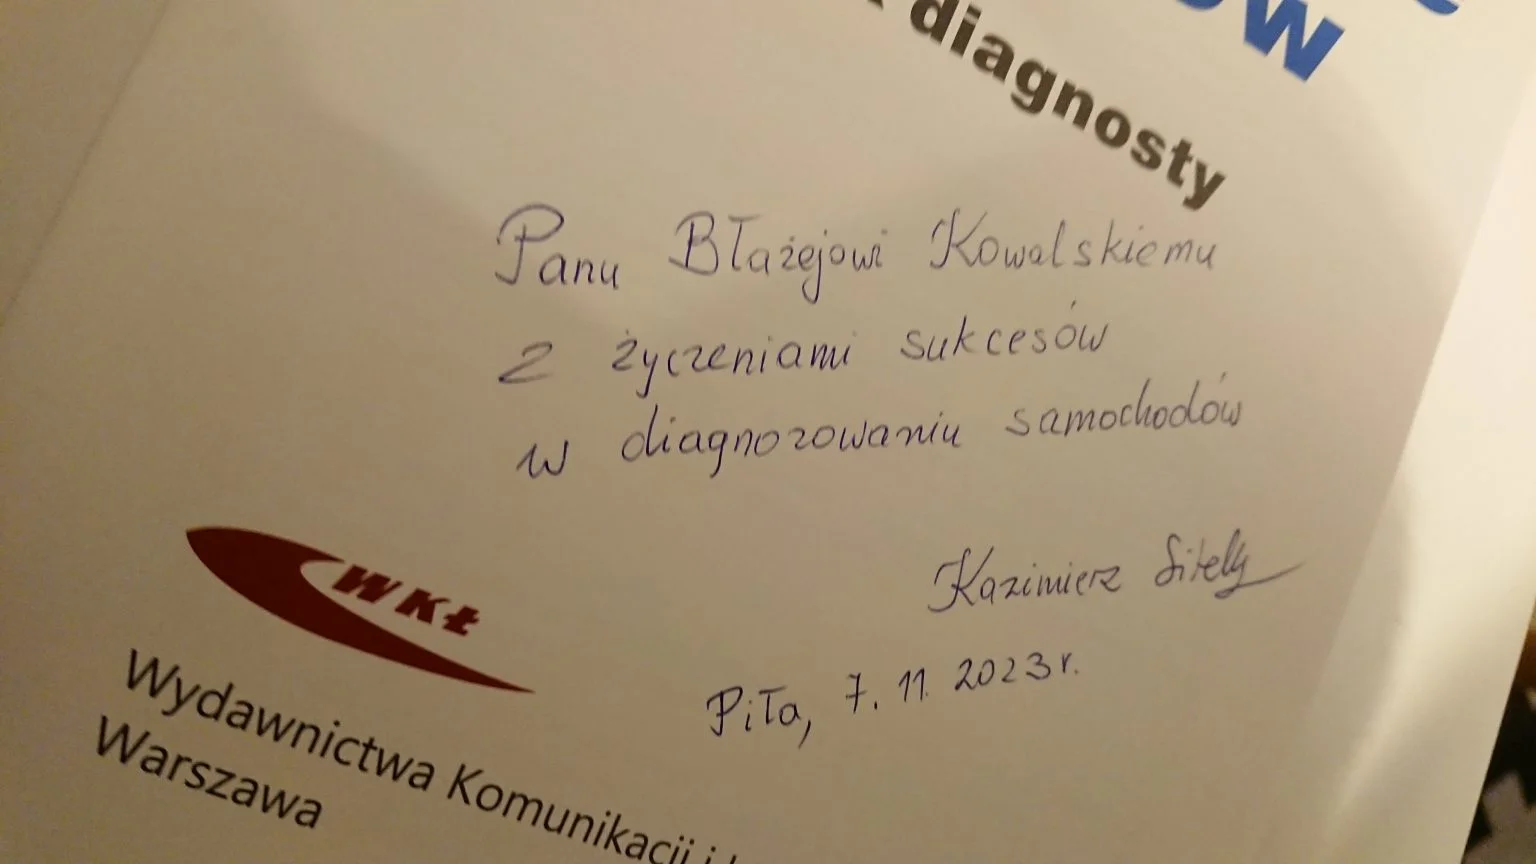 diagnosty
Panu Błażejowi Kowalskiemu
z życzeniami sukcesów
w diagnozowaniu samochodów
Kazimierz
Piła, 7. 11. 2023 r.
WKŁ
Wydawnictwa Komunikacji i
Warszawa